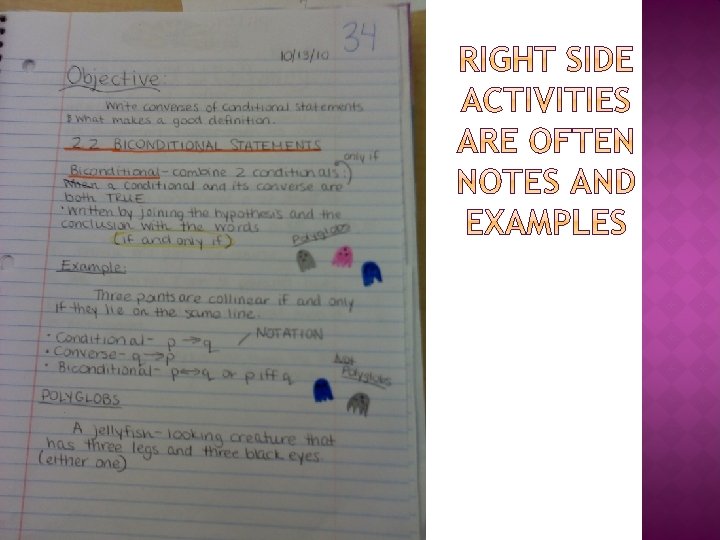 34
10/13/10
Objective:
Write converses of conditional statements
& what makes a good definition.
2.2 BICONDITIONAL STATEMENTS
only if
Biconditional - combine 2 conditionals :)
When a conditional and its converse are
both TRUE
• Written by joining the hypothesis and the
conclusion with the words
(if and only if)
Polyglobs
Example:
Three points are collinear if and only
if they lie on the same line.
NOTATION
• Conditional - p → q
• Converse - q → p
• Biconditional - p ↔ q or p iff q
Not
Polyglobs
POLYGLOBS
A jellyfish-looking creature that
has three legs and three black eyes.
(either one)
RIGHT SIDE
ACTIVITIES
ARE OFTEN
NOTES AND
EXAMPLES